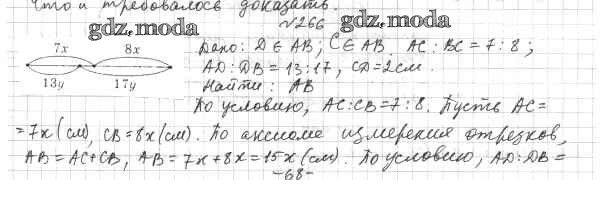 что и требовалось доказать.
gdz.moda
№266
gdz.moda
7x 8x
13y 17y
Дано: D ∈ AB; C ∈ AB. AC : BC = 7 : 8;
AD : DB = 13 : 17, CD = 2 см.
Найти: AB
По условию, AC : CB = 7 : 8. Пусть AC =
= 7x (см), CB = 8x (см). По аксиоме измерения отрезков,
AB = AC + CB, AB = 7x + 8x = 15x (см). По условию, AD : DB =
-68-